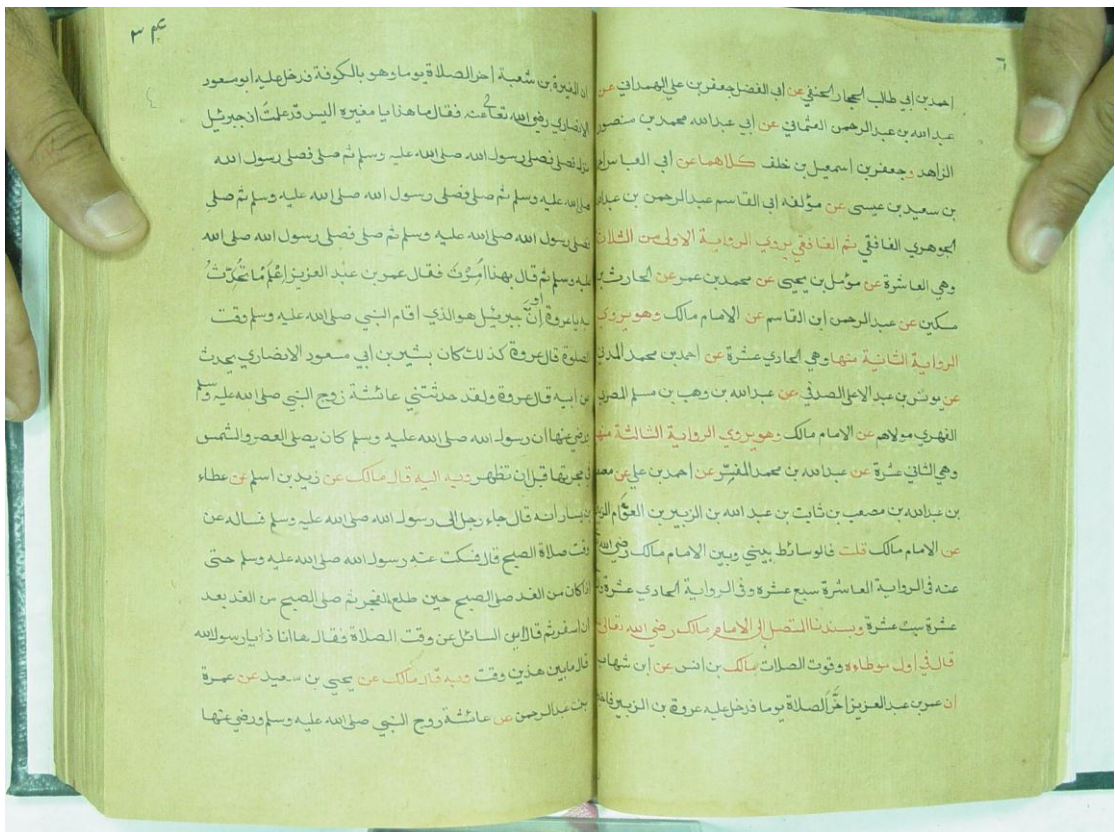 احمد بن ابي طالب الحجار الحنفي عن ابي الفضل جعفر بن علي الهمداني عن
عبد الله بن عبد الرحمن العثماني عن ابي عبد الله محمد بن منصور
الزاهد وجعفر بن اسمعيل بن خلف كلاهما عن ابي العباس
بن سعيد بن عيسى عن مؤلفه ابي القاسم عبد الرحمن بن عبد الله
الجوهري الغافقي ثم الغافقي يروي الرواية الاولى من الثلاث
وهي العاشرة عن مؤمل بن يحيى عن محمد بن عمر عن الحارث بن
مسكين عن عبد الرحمن ابن القاسم عن الامام مالك وهو يروي
الرواية الثانية منها وهي الحادي عشرة عن احمد بن محمد المدني
عن يونس بن عبد الاعلى الصدفي عن عبد الله بن وهب بن مسلم المصري
الفهري مولاهم عن الامام مالك وهو يروي الرواية الثالثة منها
وهي الثاني عشرة عن عبد الله بن محمد المفسر عن احمد بن علي عن مصعب
بن عبد الله بن مصعب بن ثابت بن عبد الله بن الزبير بن العوام
عن الامام مالك قلت فالوسائط بيني وبين الامام مالك رضي الله
عنه في الرواية العاشرة سبع عشره وفي الرواية الحادي عشرة
عشرة ست عشرة وبسندنا المتصل الى الامام مالك رضي الله تعالى
قال في اول موطاءه وقوت الصلات مالك بن انس عن ابن شهاب
ان عمر بن عبد العزيز اخّر الصلاة يوما فدخل عليه عروة بن الزبير
٣٤
٤
ان المغيرة بن شعبة اخر الصلاة يوما وهو بالكوفة فدخل عليه ابو مسعود
الانصاري رضي الله تعالى عنه فقال ما هذا يا مغيره اليس قد علمت ان جبرئيل
نزل فصلى فصلى رسول الله صلى الله عليه وسلم ثم صلى فصلى رسول الله
صلى الله عليه وسلم ثم صلى فصلى رسول الله صلى الله عليه وسلم ثم صلى
فصلى رسول الله صلى الله عليه وسلم ثم صلى فصلى رسول الله صلى الله
عليه وسلم ثم قال بهذا اُمِرْتُ فقال عمر بن عبد العزيز اعْلَمْ مَا تُحَدِّثُ
به يا عروة اوَ اِنَّ جبرئيل هو الذي اقام النبي صلى الله عليه وسلم وقت
الصلوة قال عروة كذلك كان بشير بن ابي مسعود الانصاري يحدث
عن ابيه قال عروة ولقد حدثتني عائشة زوج النبي صلى الله عليه وسلم
ورضي عنها ان رسول الله صلى الله عليه وسلم كان يصلي العصر والشمس
في حجرتها قبل ان تظهر وبه اليه قال مالك عن زيد بن اسلم عن عطاء
بن يسار أنه قال جاء رجل الى رسول الله صلى الله عليه وسلم فساله عن
وقت صلاة الصبح قال فسكت عنه رسول الله صلى الله عليه وسلم حتى
اذا كان من الغد صلى الصبح حين طلع الفجر ثم صلى الصبح من الغد بعد
ان اسفر ثم قال اين السائل عن وقت الصلاة فقال ها انا ذا يا رسول الله
قال ما بين هذين وقت وبه قال مالك عن يحيى بن سعيد عن عمرة
بنت عبد الرحمن عن عائشة زوج النبي صلى الله عليه وسلم ورضي عنها